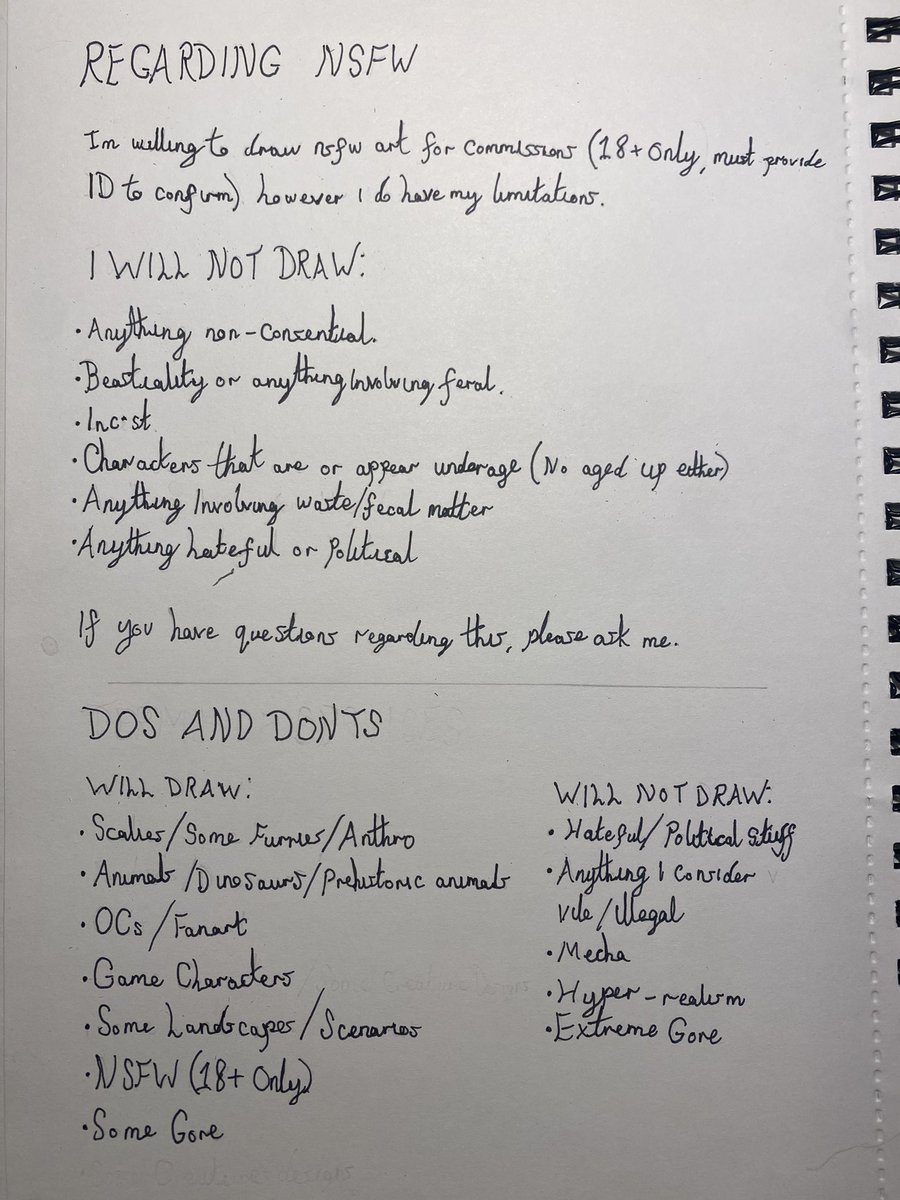 REGARDING NSFW
Im willing to draw nsfw art for commissions (18+ Only, must provide
ID to confirm) however I do have my limitations.
I WILL NOT DRAW:
• Anything non-consentual.
• Beastiality or anything involving feral.
• Inc*st
• Characters that are or appear underage (No aged up either)
• Anything Involving waste/fecal matter
• Anything hateful or Political
If you have questions regarding this, please ask me.
DOS AND DONTS
WILL DRAW:
• Scalies/Some Furries/Anthro
• Animals/Dinosaurs/Prehistoric animals
• OCs/Fanart
• Game Characters
• Some Landscapes/Scenarios
• NSFW (18+ Only)
• Some Gore
WILL NOT DRAW:
• Hateful/Political Stuff
• Anything I Consider
Vile/Illegal
• Mecha
• Hyper-realism
• Extreme Gore